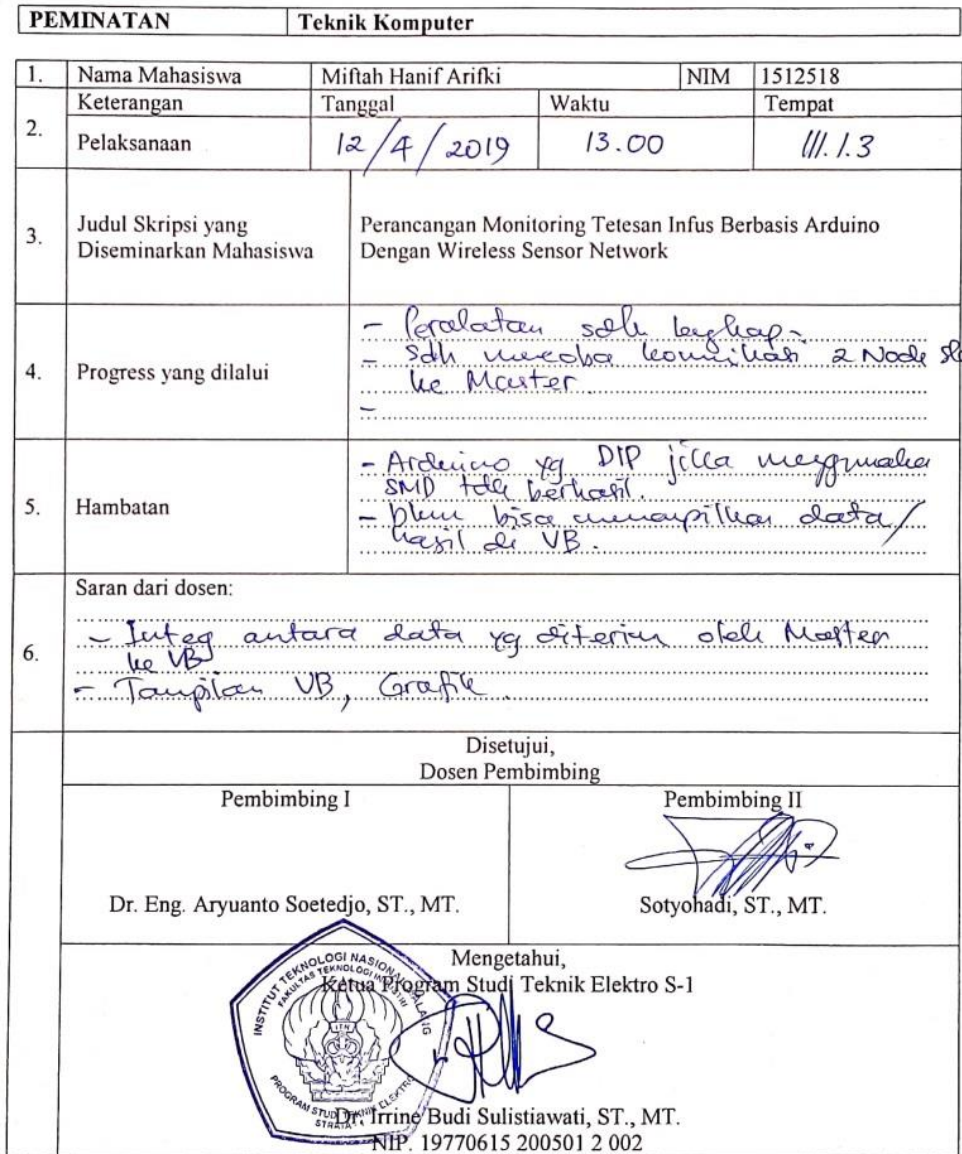 PEMINATAN Teknik Komputer
1. Nama Mahasiswa Miftah Hanif Arifki NIM 1512518
2. Keterangan Tanggal Waktu Tempat
Pelaksanaan 12/4/2019 13.00 III.1.3
3. Judul Skripsi yang Diseminarkan Mahasiswa
Perancangan Monitoring Tetesan Infus Berbasis Arduino
Dengan Wireless Sensor Network
4. Progress yang dilalui
- Peralatan sdh lengkap.
- sdh mencoba komunikasi 2 Node sl
ke Master.
-
5. Hambatan
- Arduino yg DIP jika menggunakan
SMD tdk berhasil.
- blum bisa menampilkan data/
hasil di VB.
6. Saran dari dosen:
- Integ antara data yg diterim oleh Master
ke VB
- Tampilan VB, Grafik.
Disetujui,
Dosen Pembimbing
Pembimbing I Pembimbing II
Dr. Eng. Aryuanto Soetedjo, ST., MT. Sotyohadi, ST., MT.
Mengetahui,
Ketua Program Studi Teknik Elektro S-1
INSTITUT TEKNOLOGI NASIONAL MALANG
FAKULTAS TEKNOLOGI INDUSTRI
ITN
PROGRAM STUDI TEKNIK ELEKTRO
STRATA 1
Dr. Irrine Budi Sulistiawati, ST., MT.
NIP. 19770615 200501 2 002